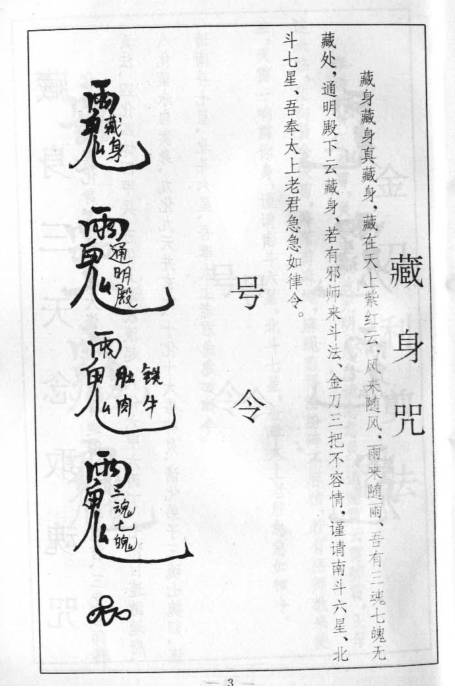 藏身咒
藏身藏身真藏身，藏在天上紫红云，风来随风，雨来随雨、吾有三魂七魄无
藏处，通明殿下云藏身、若有邪师来斗法、金刀三把不容情，谨请南斗六星、北
斗七星、吾奉太上老君急急如律令。
号令
雨鬼藏身
雨鬼通明殿
雨鬼肚肉铁牛
雨鬼三魂七魄
3